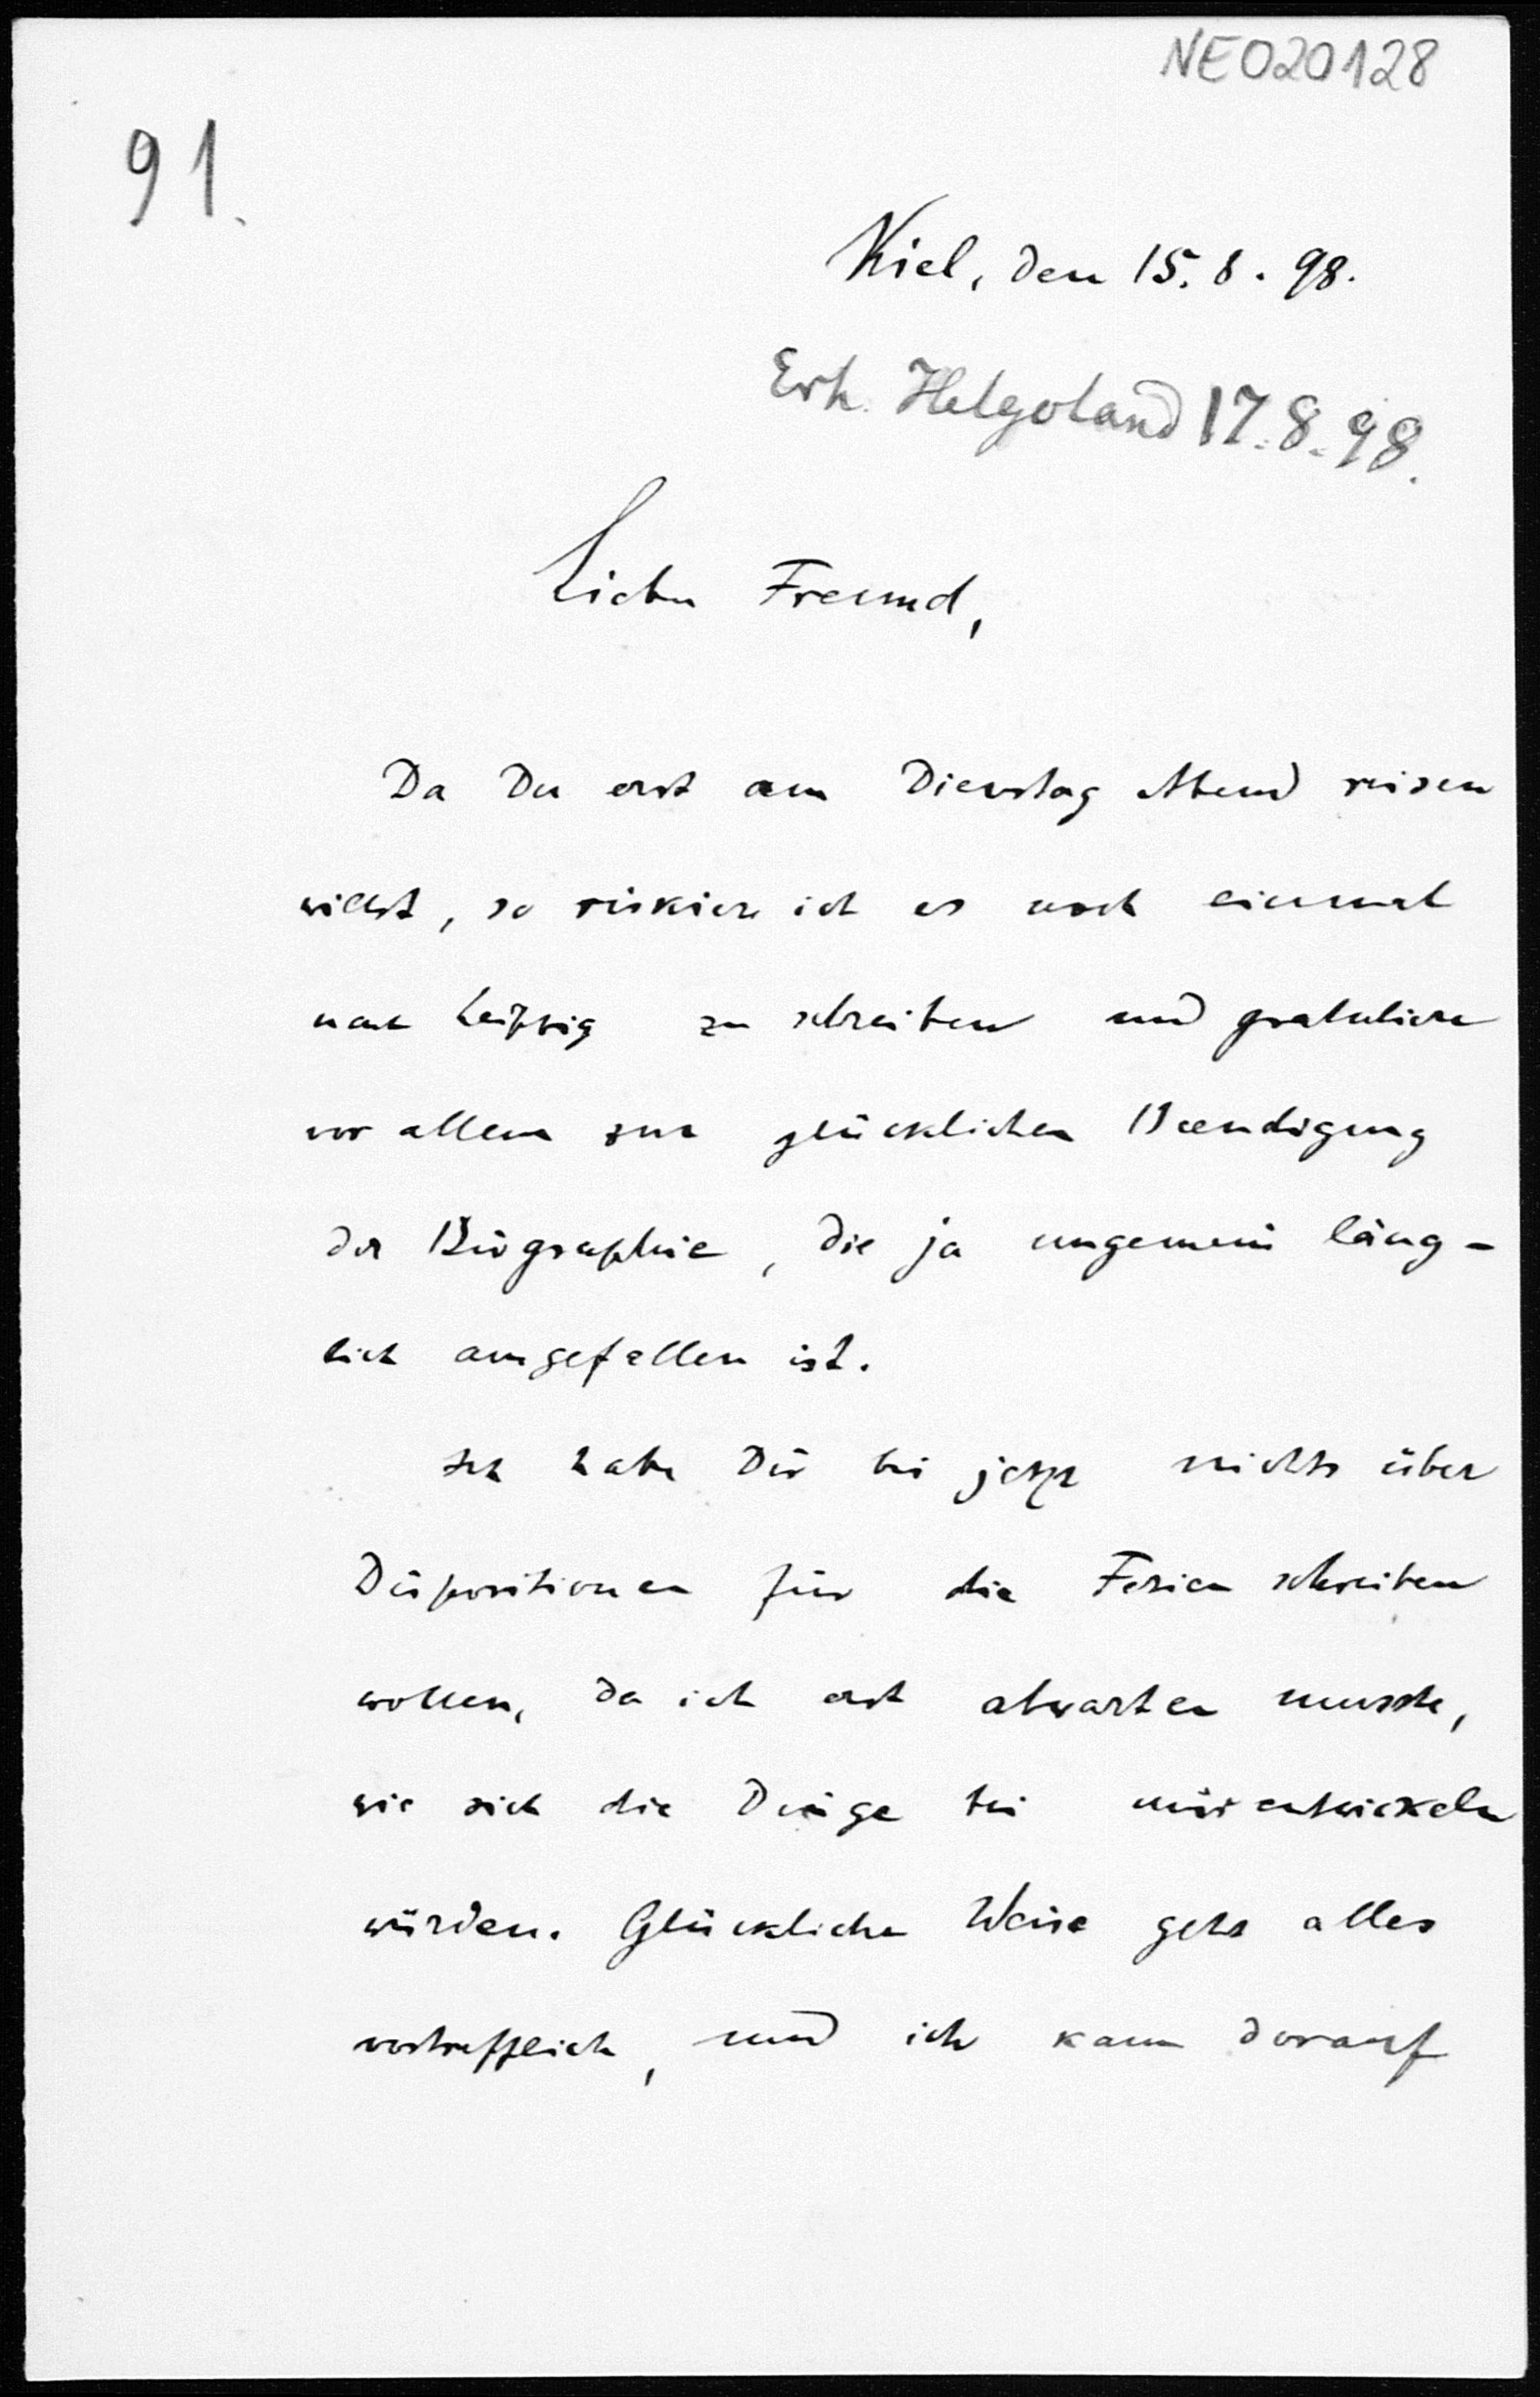 NE020128
91.
Kiel, den 15. 8. 98.
Erh. Helgoland 17. 8. 98.
Lieber Freund,
Da Du erst am Dienstag Abend reisen
willst, so riskiere ich es noch einmal
nach Leipzig zu schreiben und gratuliere
vor allem zur glücklichen Beendigung
der Biographie, die ja ungemein läng-
lich ausgefallen ist.
Ich habe Dir bis jetzt nichts über
Dispositionen für die Ferien schreiben
wollen, da ich erst abwarten musste,
wie sich die Dinge bei mir entwickeln
würden. Glücklicher Weise geht alles
vortrefflich, und ich kann darauf